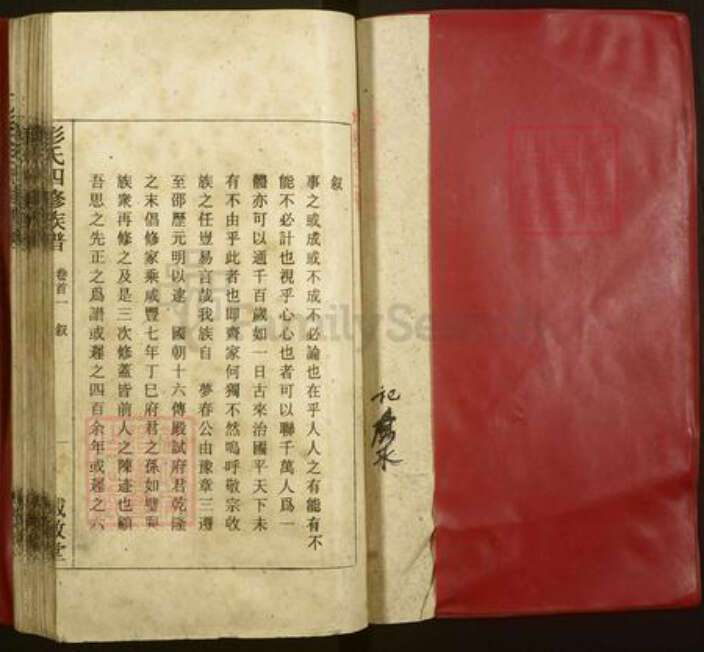 叙
事之或成或不成不必論也在乎人人之有能有不
能不必計也視乎心心也者可以聯千萬人爲一
體亦可以通千百歲如一日古來治國平天下未
有不由乎此者也即齊家何獨不然嗚呼敬宗收
族之任豈易言哉我族自 夢春公由豫章三遷
至邵歷元明以逮 國朝十六傳殿試府君乾隆
之末倡修家乘咸豐七年丁巳府君之孫如璧
族衆再修之及是三次修蓋皆前人之陳迹也顧
吾思之先正之爲譜或遲之四百余年或遲之六
彭氏四修族譜
卷首一
叙
敬堂
記
水
FamilySearch